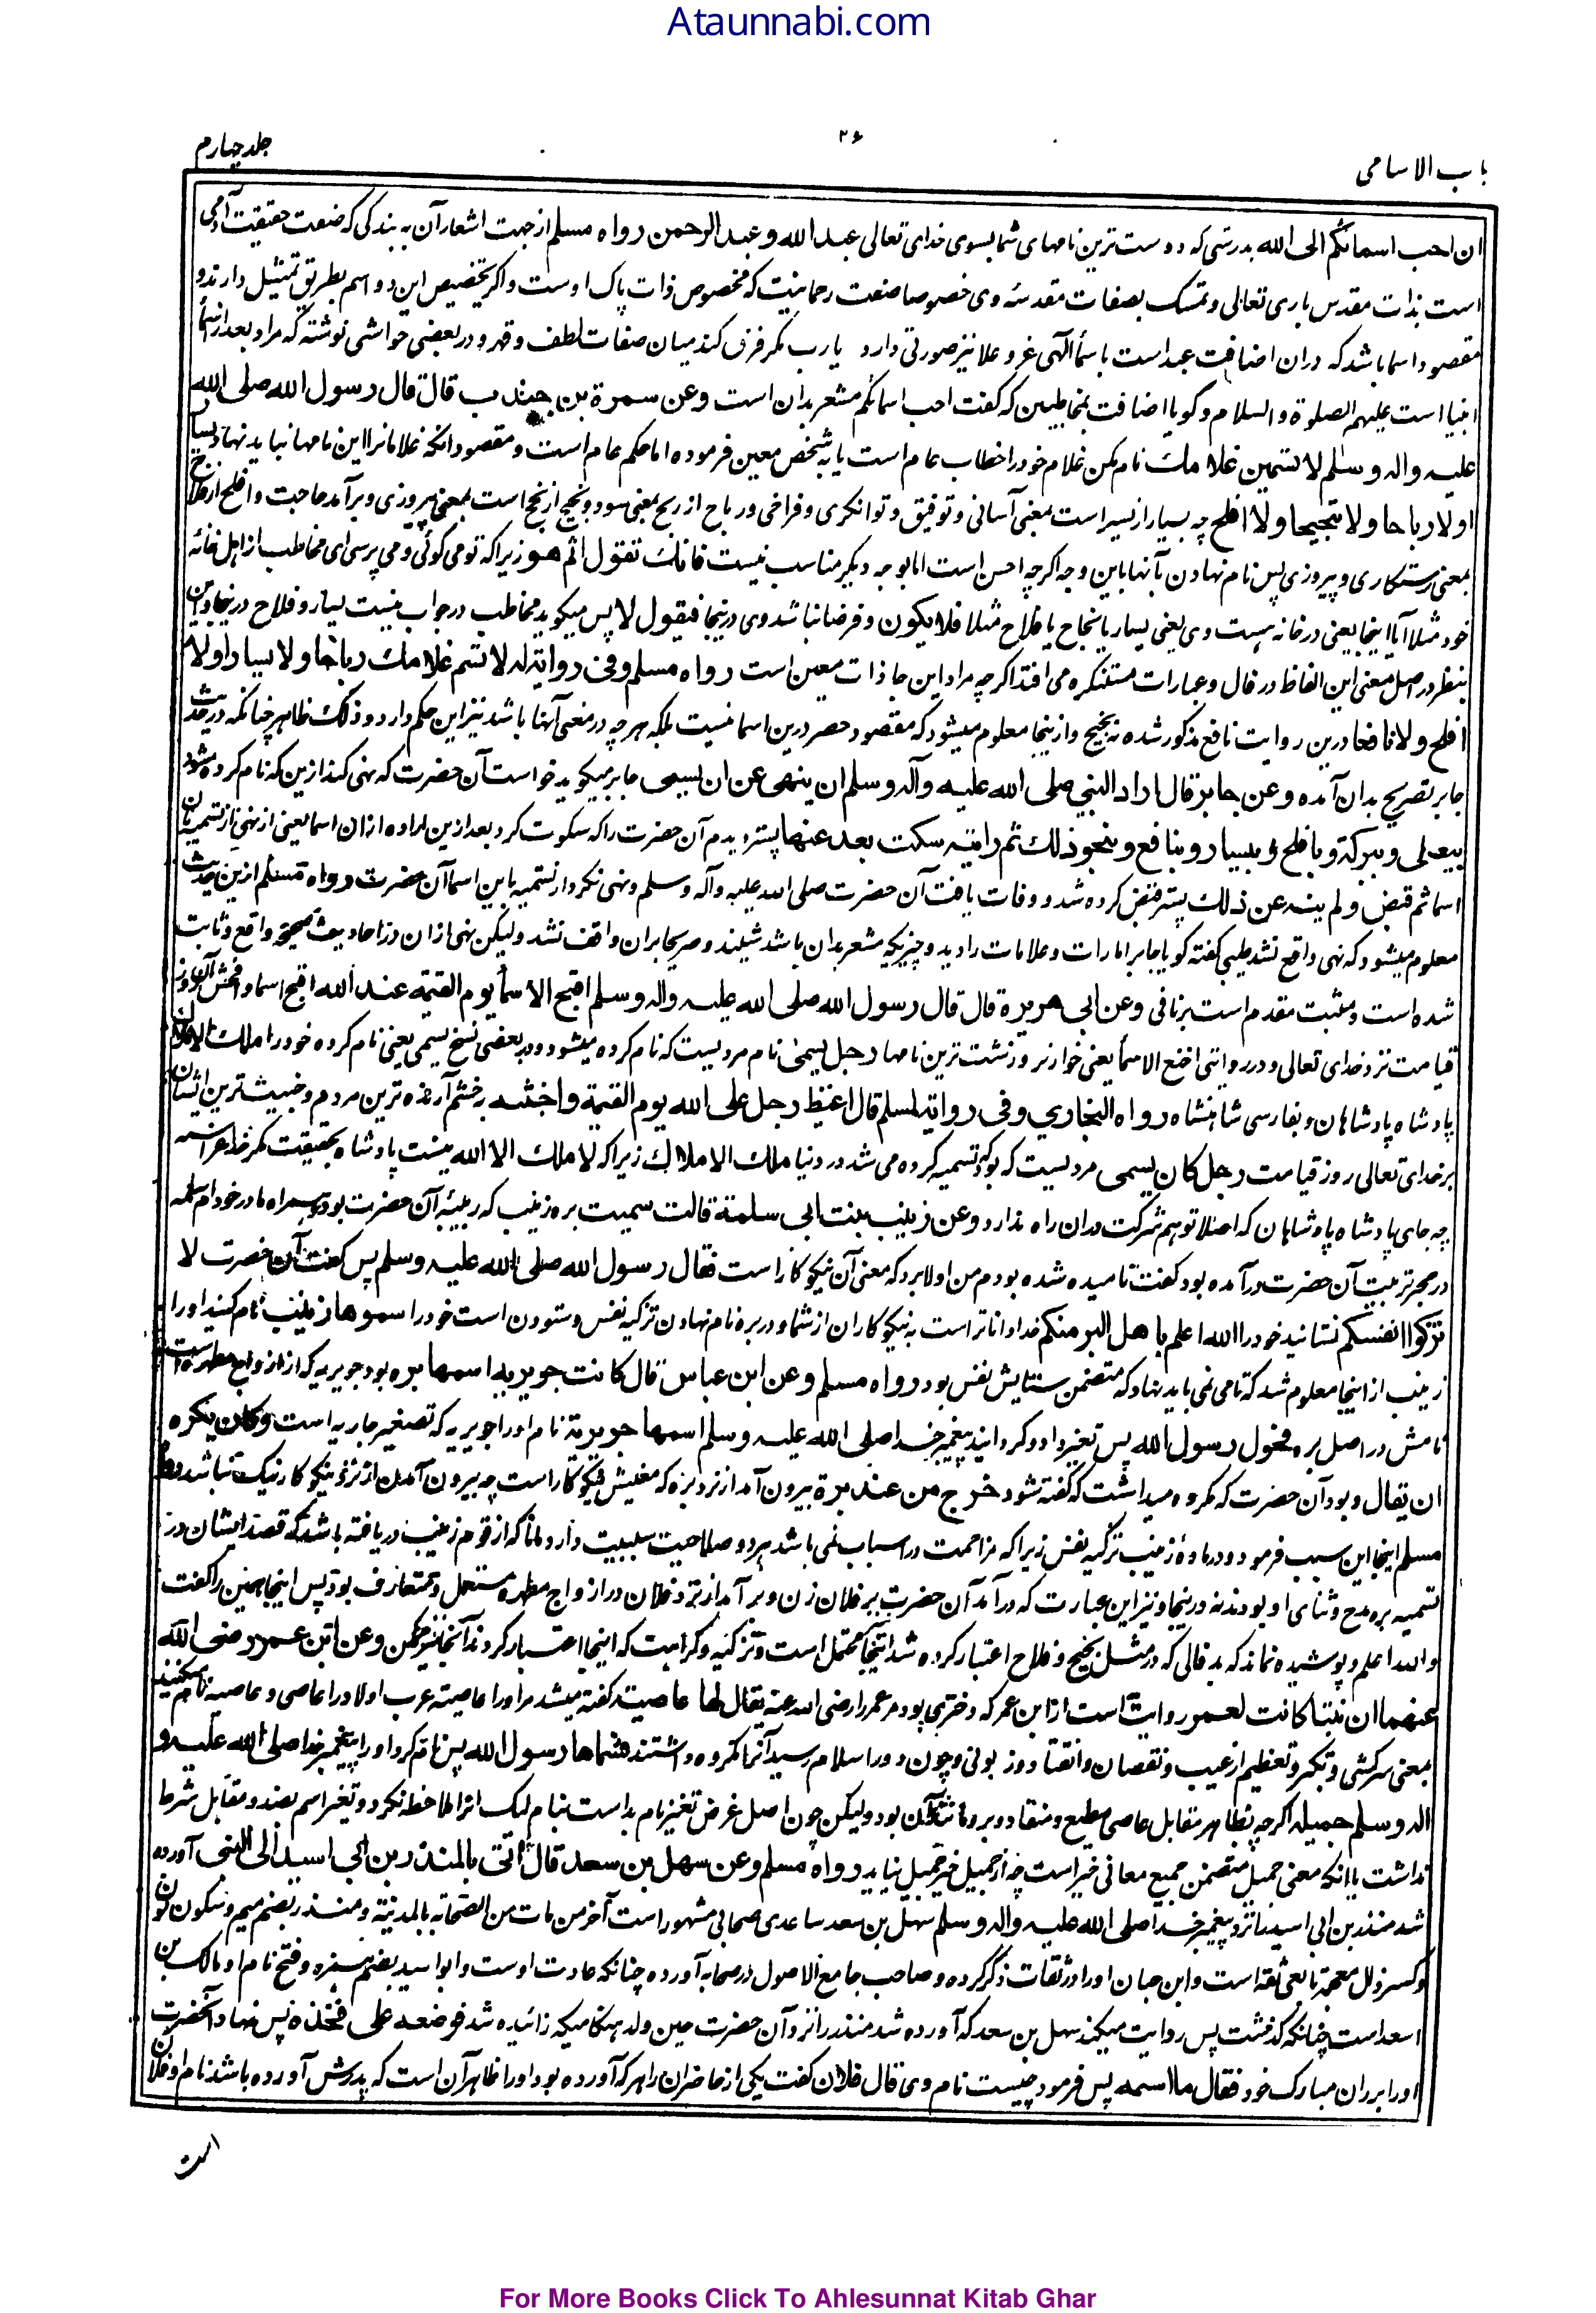 Ataunnabi.com
۴۶
جلد چهارم
باب الاسامی
ان احب اسمائکم الی الله بدرستی که دوست ترین نامهای شما بسوی خدای تعالی عبد الله و عبد الرحمن رواه مسلم از جهت اشعار آن به بندگی که صفت حقیقت آدمی
است بذات مقدس باری تعالی و تمسک بصفات مقدسه وی خصوصا صفت رحمانیت که مخصوص ذات پاک اوست و اگر تخصیص این دو اسم بطریق تمثیل دارند و
مقصود اسما باشد که دران اضافت عبد است باسمأ الهی عز و علا نیز صورتی دارد یارب مگر فرق کند میان صفات لطف و قهر و در بعضی حواشی نوشته که مراد بعد از اسمأ
انبیا است علیهم الصلوة والسلام و گویا اضافت بمخاطبین که گفت احب اسمائکم مشعر بدان است وعن سمرة بن جندب قال قال رسول الله صلی الله
علیه واله وسلم لا تسمین غلامك نام مکن غلام خود را خطاب عام است یا به شخص معین فرموده اما حکم عام است و مقصود آنکه غلامانرا این نامها نباید نهاد یسارا
ولا رباحا ولا نجیحا ولا افلح چه یسار از یسیر است بمعنی آسانی و توفیق و توانگری و فراخی و رباح از ربح بمعنی سود و نجیح از نجح است بمعنی پیروزی و برآمد حاجت و افلح از فلاح
بمعنی رستگاری و پیروزی پس نام نهادن بآنها باین وجه اگرچه احسن است اما بوجه دیگر مناسب نیست فانك تقول اثم هو زیرا که تو می گوئی و می پرسی ای مخاطب از اهل خانه
خود مثلا آیا اینجا یعنی در خانه هست وی یعنی یسار یا نجاح یا فلاح مثلا فلا یکون و فرضا نباشد وی درینجا فیقول لا پس میگوید مخاطب در جواب نیست یسار و فلاح درینجا و این
بنظر در اصل معنی این الفاظ در فال و عبارات مستنکره می افتد اگرچه مراد این جا ذات معین است رواه مسلم وفی روایة له لا تسم غلامك رباحا ولا یسارا ولا
افلح ولا نافعا درین روایت نافع مذکور شده نه نجیح و ازینجا معلوم میشود که مقصود حصر درین اسما نیست بلکه هرچه در معنی آنها باشد نیز این حکم دارد و ذلک ظاهر چنانکه در حدیث
جابر تصریح بدان آمده وعن جابر قال اراد النبی صلی الله علیه وآله وسلم ان ینهی عن ان یسمی جابر میگوید خواست آن حضرت که نهی کند ازین که نام کرده شود
بیعلی وببرکة وبافلح وبیسار وبنافع وبنحو ذلك ثم رأیته سکت بعد عنها پستر دیدم آن حضرت را که سکوت کرد بعد ازین اراده ازان اسما یعنی از نهی از تسمیه بآن
اسما ثم قبض ولم ینه عن ذلك پستر قبض کرده شد و وفات یافت آن حضرت صلی الله علیه وآله وسلم و نهی نکرد از تسمیه باین اسما آن حضرت رواه مسلم ازین حدیث
معلوم میشود که نهی واقع نشد طیبی گفته گویا جابر امارات و علامات را دید و چیزیکه مشعر بدان باشد شنید و صریحا بران واقف نشد ولیکن نهی ازان در احادیث صحیحه واقع و ثابت
شده است و مثبت مقدم است بر نافی وعن ابی هریرة قال قال رسول الله صلی الله علیه واله وسلم اقبح الاسمأ یوم القیمة عند الله اقبح اسما و افحش آن روز
قیامت نزد خدای تعالی و در روایتی اخنع الاسمأ یعنی خوارتر و زشت ترین نامها رجل یسمی نام مردیست که نام کرده میشود و در بعضی نسخ یسمی یعنی نام کرده خود را ملك الاملاك
پادشاه پادشاهان و بفارسی شاهنشاه رواه البخاری وفی روایة لمسلم قال اغیظ رجل علی الله یوم القیمة واخبثه بخشم آرنده ترین مردم و خبیث ترین ایشان
بر خدای تعالی روز قیامت رجل کان یسمی مردیست که بود تسمیه کرده می شد در دنیا ملك الاملاك زیرا که لا ملك الا الله نیست پادشاه بحقیقت مگر خدا عز اسمه
چه جای پادشاه پادشاهان که اصلا توهم شرکت بدان راه ندارد وعن زینب بنت ابی سلمة قالت سمیت بره زینب که ربیبه آن حضرت بود و همراه مادر خود ام سلمه
در حجر تربیت آن حضرت در آمده بود گفت نامیده شده بودم من اولا بره که معنی آن نیکوکار است فقال رسول الله صلی الله علیه وسلم پس گفت آن حضرت لا
تزکوا انفسکم نستائید خود را الله اعلم باهل البر منکم خدا داناتر است به نیکوکاران از شما و در بره نام نهادن تزکیه نفس و ستودن است خود را سموها زینب نام کنید او را
زینب از اینجا معلوم شد که نامی نمی باید نهاد که متضمن ستایش نفس بود رواه مسلم وعن ابن عباس قال کانت جویریه اسمها بره بود جویریه که از ازواج مطهره است
نامش در اصل بره فحول رسول الله پس تغییر داد و گردانید پیغمبر خدا صلی الله علیه وسلم اسمها جویریة نام او را جویریه که تصغیر جاریه است وکان یکره
ان یقال و بود آن حضرت که مکروه میداشت که گفته شود خرج من عند برة بیرون آمد از نزد بره که معنیش نیکوکار است چه بیرون آمدن از نزد نیکوکار نیک نباشد رواه
مسلم اینجا این سبب فرمود و در ماده زینب تزکیه نفس زیرا که مزاحمت در اسباب نمی باشد هر دو صلاحیت سببیت دارد و مانا که از قوم زینب دریافته باشد که قصد ایشان در
تسمیه بره مدح و ثنای او بود نه درینجا و نیز این عبارت که در آمد آن حضرت بر فلان زن و برآمد از نزد فلان در ازواج مطهره مستعمل و متعارف بود پس اینجا همین را گفت
والله اعلم و پوشیده نماند که بد فالی که در مثل نجیح و فلاح اعتبار کرده شد اینجا محتمل است و تزکیه و کراهیت که اینجا اعتبار کردند آنجا نیز ممکن وعن ابن عمر رضی الله
عنهما ان بنتا کانت لعمر روایت است از ابن عمر که دختری بود مر عمر را رضی الله عنه یقال لها عاصیة گفته میشد مر او را عاصیه عرب اولاد را عاصی و عاصیه نام میکنند
بمعنی سرکشی و تکبر و تعظیم از عیب و نقصان و انقیاد و زبونی و چون دور اسلام رسید آنرا مکروه داشتند فسماها رسول الله پس نام کرد او را پیغمبر خدا صلی الله علیه و
اله وسلم جمیله اگرچه بظاهر مقابل عاصی مطیع و منقاد و بره مانند آن بود ولیکن چون اصل غرض تغییر نام بد است بنام نیک آنرا ملاحظه نکرد و تغیر اسم بضد و مقابل شرط
نداشت یا آنکه معنی جمیل متضمن جمیع معانی خیر است چه از جمیل خیر جمیل نیاید رواه مسلم وعن سهل بن سعد قال اتی بالمنذر بن ابی اسید الی النبی آورده
شد منذر بن ابی اسید نزد پیغمبر خدا صلی الله علیه واله وسلم سهل بن سعد ساعدی صحابی مشهور است آخر من مات من الصحابه بالمدینة و منذر بضم میم و سکون نون
و کسر ذال معجمه تابعی ثقه است و ابن حبان او را در ثقات ذکر کرده و صاحب جامع الاصول در صحابه آورده چنانکه عادت اوست و ابو اسید بضم همزه و فتح نام او مالک بن
اسعد است چنانکه گذشت پس روایت میکند سهل بن سعد که آورده شد منذر را نزد آن حضرت حین ولد هنگامیکه زائیده شد فوضعه علی فخذه پس نهاد آنحضرت
او را بر ران مبارک خود فقال ما اسمه پس فرمود چیست نام وی قال فلان گفت یکی از حاضران را هر که آورده بود او را ظاهر آن است که پدرش آورده باشد نام او فلان
است
For More Books Click To Ahlesunnat Kitab Ghar